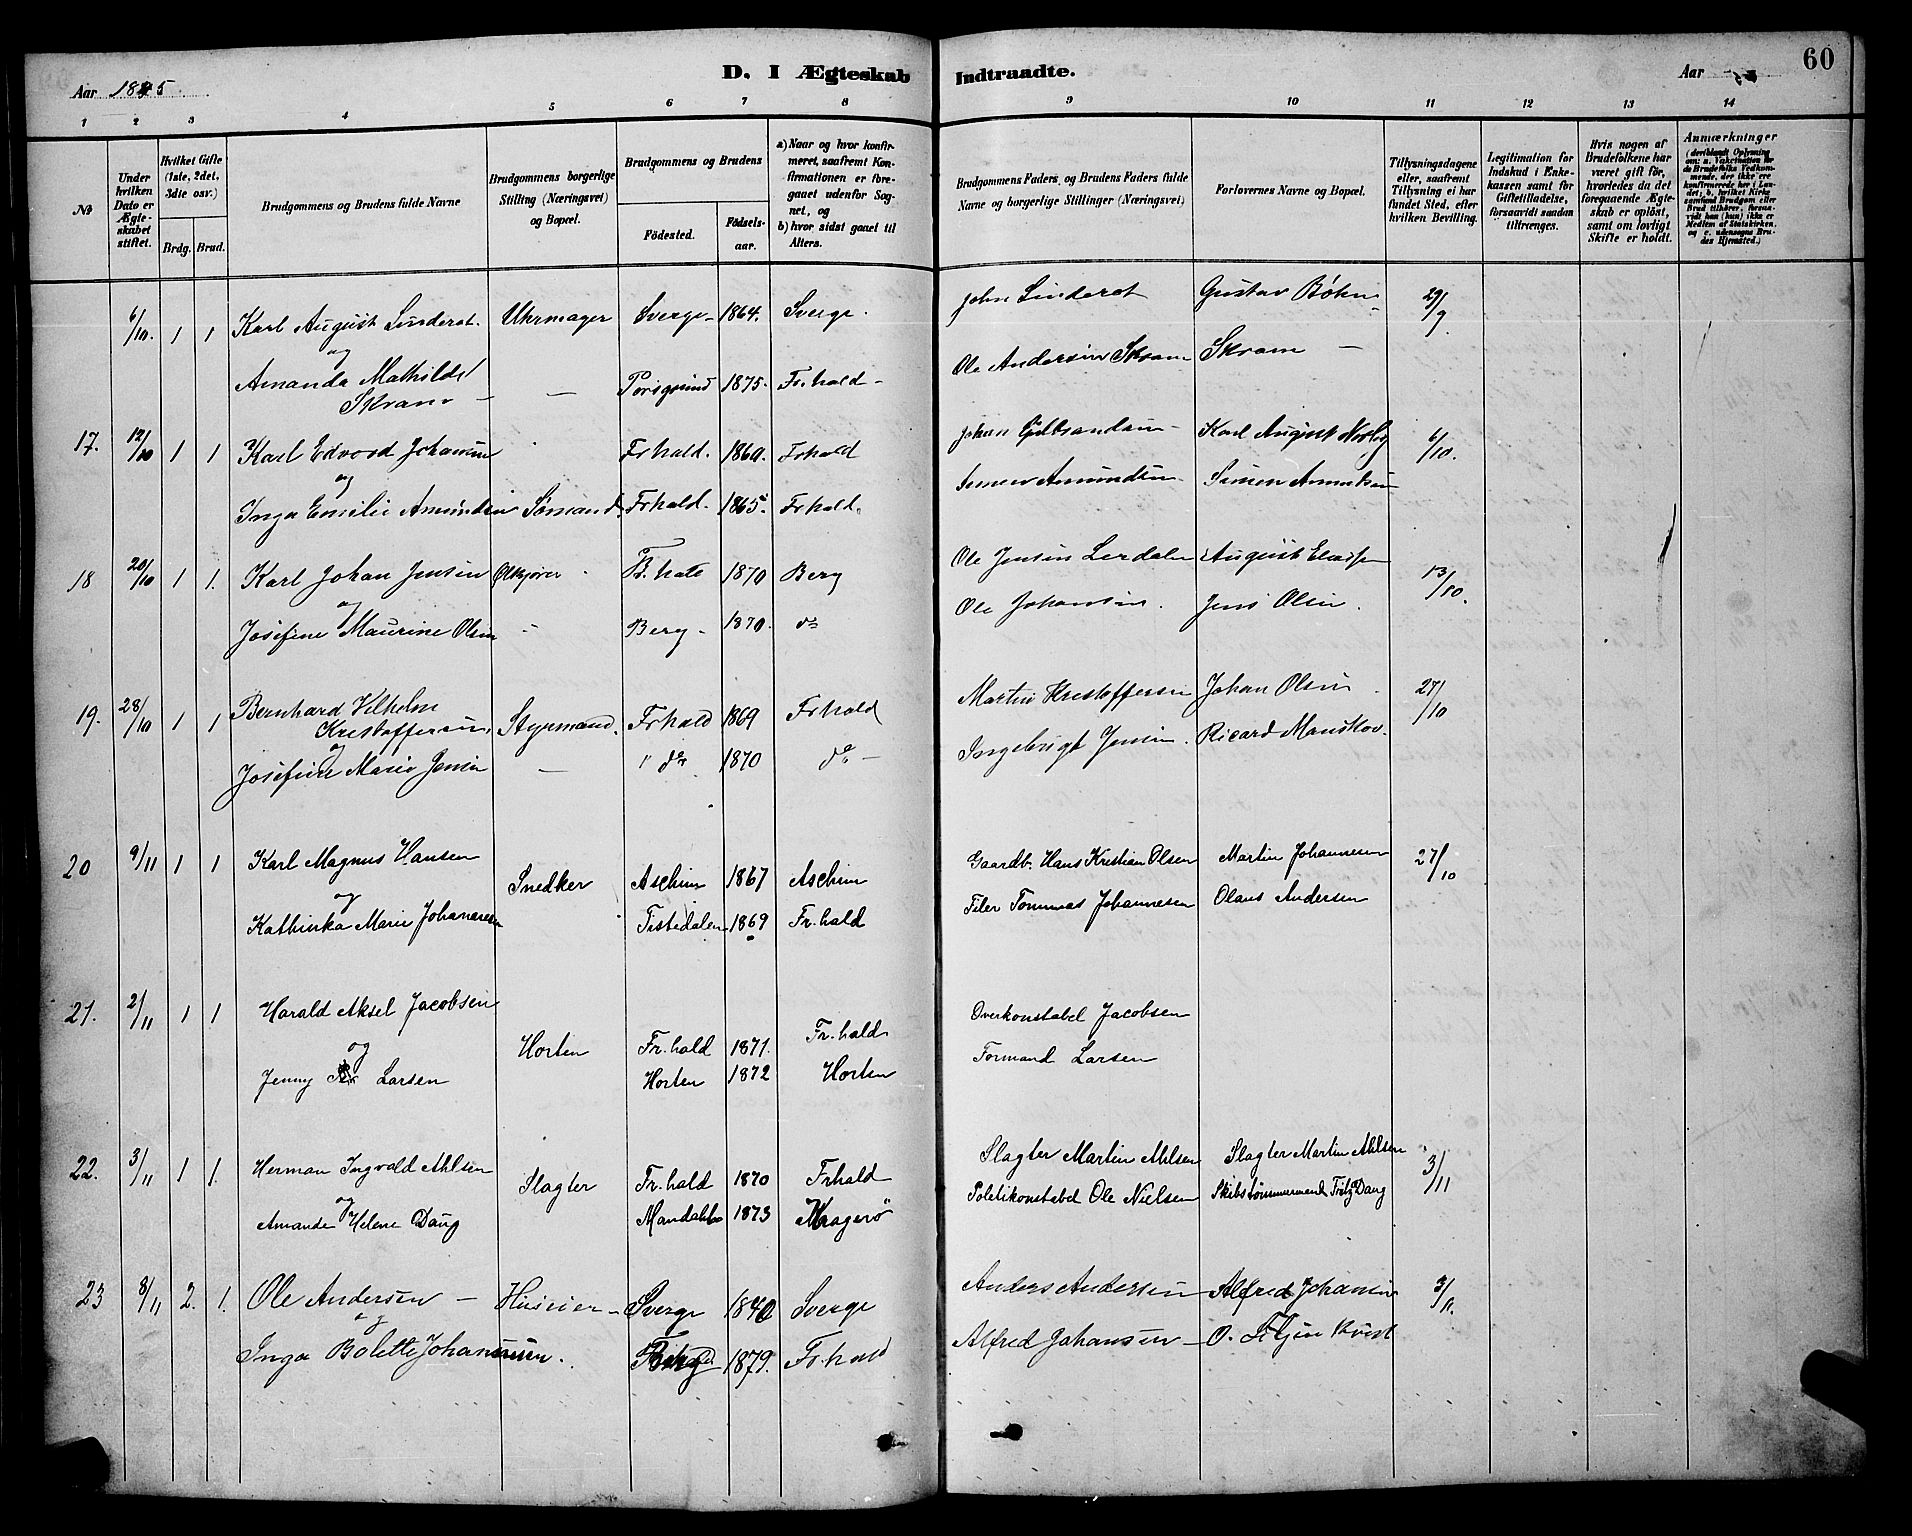 Aar 1895.
D. I Ægteskab Indtraadte.
Aar
60
1 2 3 4 5 6 7 8 9 10 11 12 13 14
No
Under hvilken Dato er Ægteskabet stiftet.
Hvilket Gifte (1ste, 2det, 3die osv.)
Brdg. Brud.
Brudgommens og Brudens fulde Navne
Brudgommens borgerlige Stilling (Næringsvei) og Bopæl.
Brudgommens og Brudens
Fødested.
Fødselsaar.
a) Naar og hvor konfirmeret, saafremt Konfirmationen er foregaaet udenfor Sognet, og
b) hvor sidst gaaet til Alters.
Brudgommens Faders og Brudens Faders fulde Navne og borgerlige Stillinger (Næringsvei)
Forlovernes Navne og Bopæl.
Tillysningsdagene eller, saafremt Tillysning ei har fundet Sted, efter hvilken Bevilling.
Legitimation for Indskud i Enkekassen samt for Giftetilladelse, forsaavidt saadan tiltrænges.
Hvis nogen af Brudefolkene har været gift før, hvorledes da det foregaaende Ægteskab er opløst, samt om lovligt Skifte er holdt.
Anmærkninger
6/10. 1 1 Karl August Linderot. Uhrmager Sverge 1864. Sverge. John Linderot Gustav 29/9
og
Amanda Mathilde Skram — Porsgrund 1875. Fr.hald Ole Andersen Skram Skram —
17. 12/10 1 1 Karl Edvard Johansen Frhald. 1869. Frhald Johan Karl August 6/10.
og
Inga Emilie Amundsen Sømand. Frhald. 1865. Frhald. Simen Amundsen Simen Amundsen
18 20/10 1 1. Karl Johan Jensen 1870 Berg Ole Jensen Lerdalen August 13/10.
og
Josefine Maurine Olsen Berg 1870. do Ole Johansen. Jens Olsen.
19. 28/10 1 1 Bernhard Vilhelm Kristoffersen, Styrmand. Frhald 1869 Frhald Martin Kristoffersen Johan Olsen 27/10
og
Josefine Marie Jensen — " do 1870 do — Ingebrigt Jensen. Ricard Manskov.
20 9/11 1 1 Karl Magnus Hansen Snedker Aschim 1867 Aschim Gaardb. Hans Kristian Olsen Martin Johannesen 27/10
og
Kathinka Marie Johannesen Tistedalen 1869 Fr.hald Filer Tommas Johannesen Olaus Andersen
21. 2/11 1 1 Harald Aksel Jacobsen Horten Fr.hald 1871. Fr.hald Overkonstabel Jacobsen
og
Jenny Larsen Horten 1872 Horten Formand Larsen
22. 3/11 1 1. Herman Ingvald Ahlsen Slagter Fr.hald 1870 Frhald Slagter Martin Ahlsen Slagter Martin Ahlsen 3/11
og
Amanda Helene Daug 1873 Kragerö Politikonstabel Ole Nielsen Skibstømmermand Fritz Daug
23 8/11 2. 1. Ole Andersen — Huseier Sverge 1840 Sverge Anders Andersen Alfred Johansen 3/11.
og
Inga Bolette Johannesen. 1879. Frhald Alfred Johansen O.